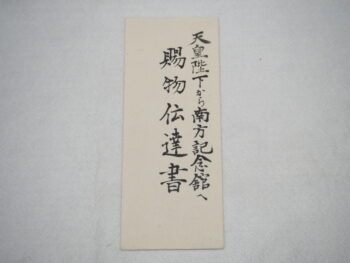 天皇陛下から南方記念館へ
賜物伝達書